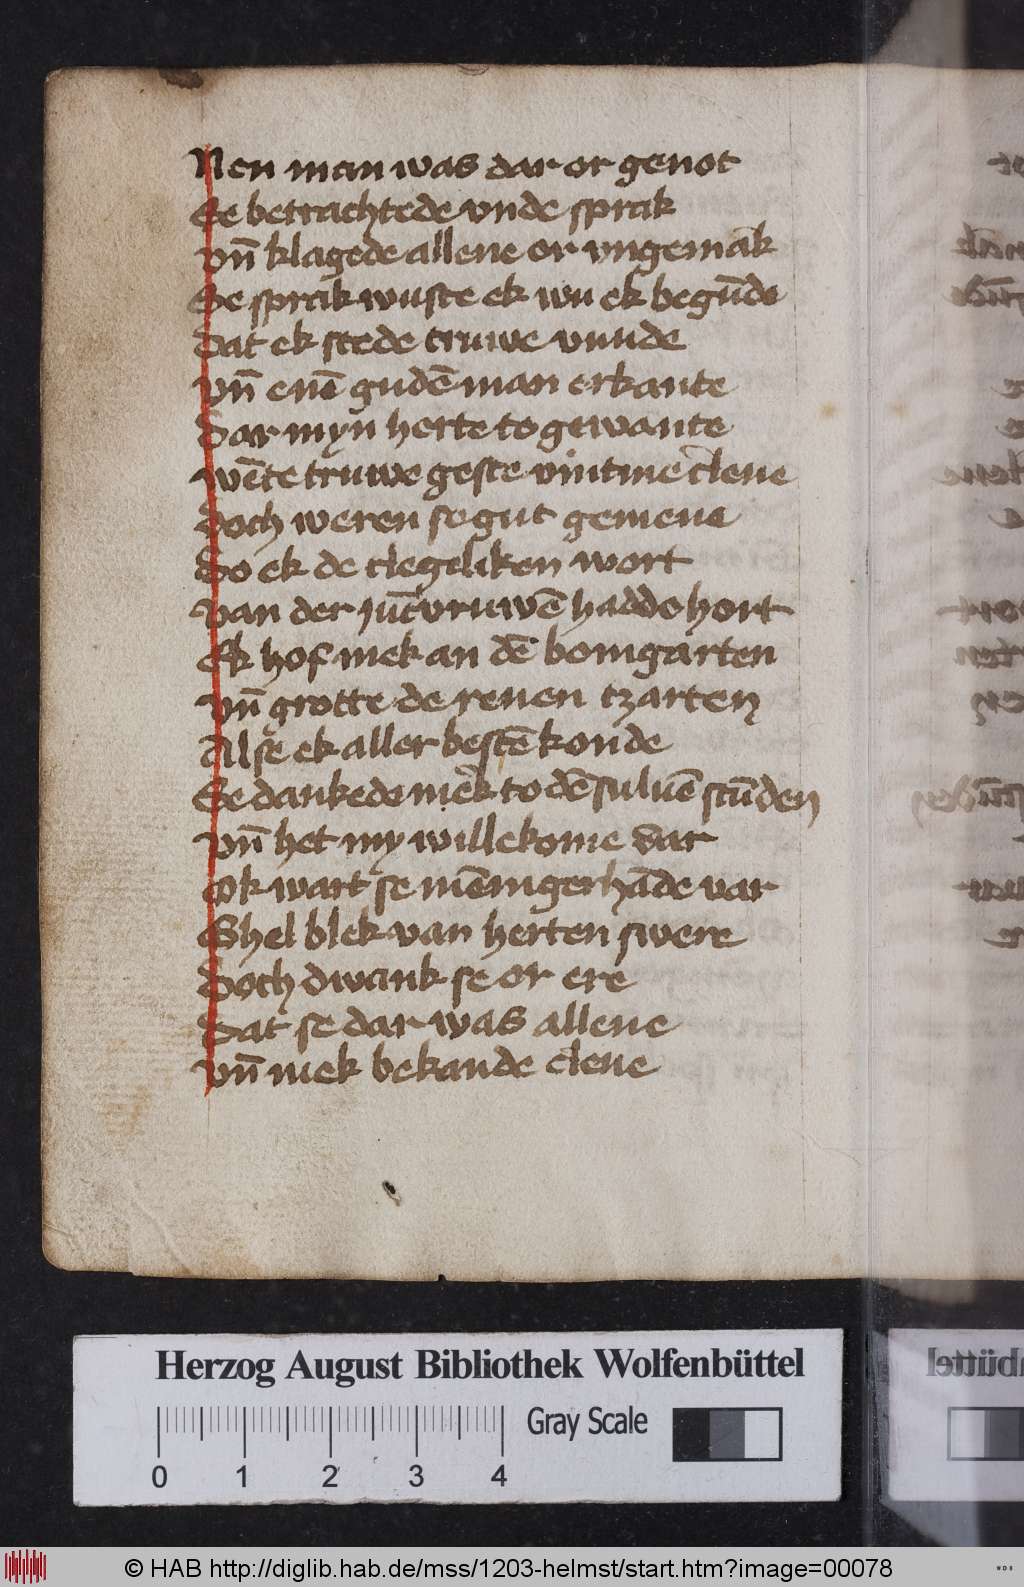 Nen man was dar or genot
Se betrachtede vnde sprak
vn̄ klagede allene or vngemak
Se sprak wuste ek wu ek begūde
Dat ek stede truwe vunde
vn̄ enē gudē man erkante
Dar myn herte to gewante
wēte truwe geste vint me clene
doch weren se gut gemene
Do ek de clegeliken wort
van der jūcvruwē hadde hort
Ek hof mek an dē bomgarten
vn̄ grotte de renen tzarten
Alse ek aller bestē konde
Se dankede mek to dē suluē stūden
vn̄ het my willekome dar
Ok wart se mēnigerhāde var
Ghel blek van herten swere
Doch dwank se or ere
Dat se dar was allene
vn̄ mek bekande clene
Herzog August Bibliothek Wolfenbüttel
Gray Scale
0 1 2 3 4
© HAB http://diglib.hab.de/mss/1203-helmst/start.htm?image=00078